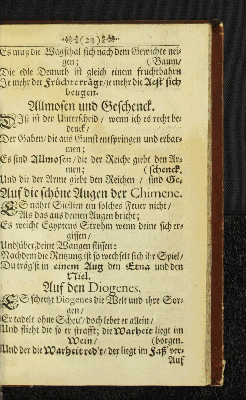 (23)
Es muß die Wagschal sich nach dem Gewichte nei-
gen; (Baum/
Die edle Demuth ist gleich einem fruchtbahrn
Je mehr der Früchte trägt/je mehr die Aest' sich
beugen.
Allmosen und Geschenck.
Diß ist der Unterscheid/ wenn ich es recht be-
denck/
Der Gaben/ die aus Gunst entspringen und erbar-
men;
Es sind Allmosen/ die der Reiche giebt den Ar-
men; (schenck.
Und die der Arme giebt den Reichen/ sind Ge-
Auf die schöne Augen der Chimene.
Es nährt Sicilien ein solches Feuer nicht/
Als das aus deinen Augen bricht;
Es weicht Egyptens Strohm wenn deine sich er-
giessen/
Und über deine Wangen fliessen:
Nach dem die Regung ist so wechselt sich ihr Spiel/
Du trägst in einem Aug den Etna und den
Niel.
Auf den Diogenes.
Es schertzt Diogenes die Welt und ihre Sor-
gen/
Er tadelt ohne Scheu/ doch lebet er allein/
Und flieht die so er strafft; die Warheit liegt im
Wein/ (borgen.
Und der die Warheit red't/ der liegt im Faß ver-
Auf